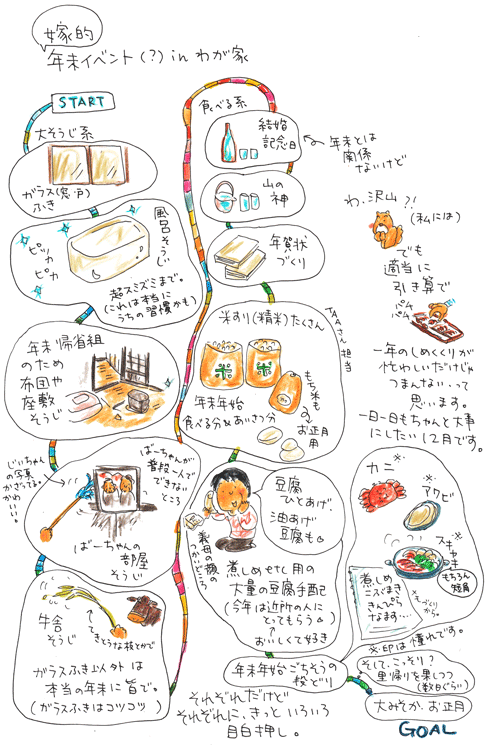 嫁的
年末イベント(?) in わが家
START
大そうじ系
ガラス(窓・戸)
ふき
風呂そうじ
ピッカ
ピカ
超スミズミまで。
(これは本当に
うちの習慣かも)
年末帰省組
のため
布団や
座敷
そうじ
じいちゃん
の写真
かざってる。
かわいい…。
ばーちゃんが
普段一人で
できない
ところ
ばーちゃんの
部屋
そうじ
牛舎
そうじ
てきとうな枝とかで
ガラスふき以外は
本当の年末に旨で。
(ガラスふきはコツコツ)
食べる系
結婚
記念日
年末とは
関係
ないけど
山の
神
年賀状
づくり
米すり(精米)たくさん
担当
米
米
もち米も
お正月
用
年末年始
食べる分&あいさつ分
豆腐
ひとあげ、
油あげ
豆腐も
義母の顔の
つかいどころ
煮しめetc用の
大量の豆腐手配
(今年は近所の人に
とってもらう)
おいしくて好き
年末年始ごちそうの
段どり
それぞれだけど
それぞれに、きっと いろいろ
目白押し。
わ、沢山?!
(私には)
でも
適当に
引き算で
パチ
パチ
一年のしめくくりが
忙わしいだけじゃ
つまんない…って
思います。
一日一日もちゃんと大事
にしたい12月です。
※カニ
※アワビ
※スキヤキ
もちろん
短角
煮しめ
こくまき
きんぴら
なます…
ものづくり
から。
※印は憧れです。
そして、こっそり?
里帰りを果しつつ
(数日ぐらい)
大みそか、お正月
GOAL